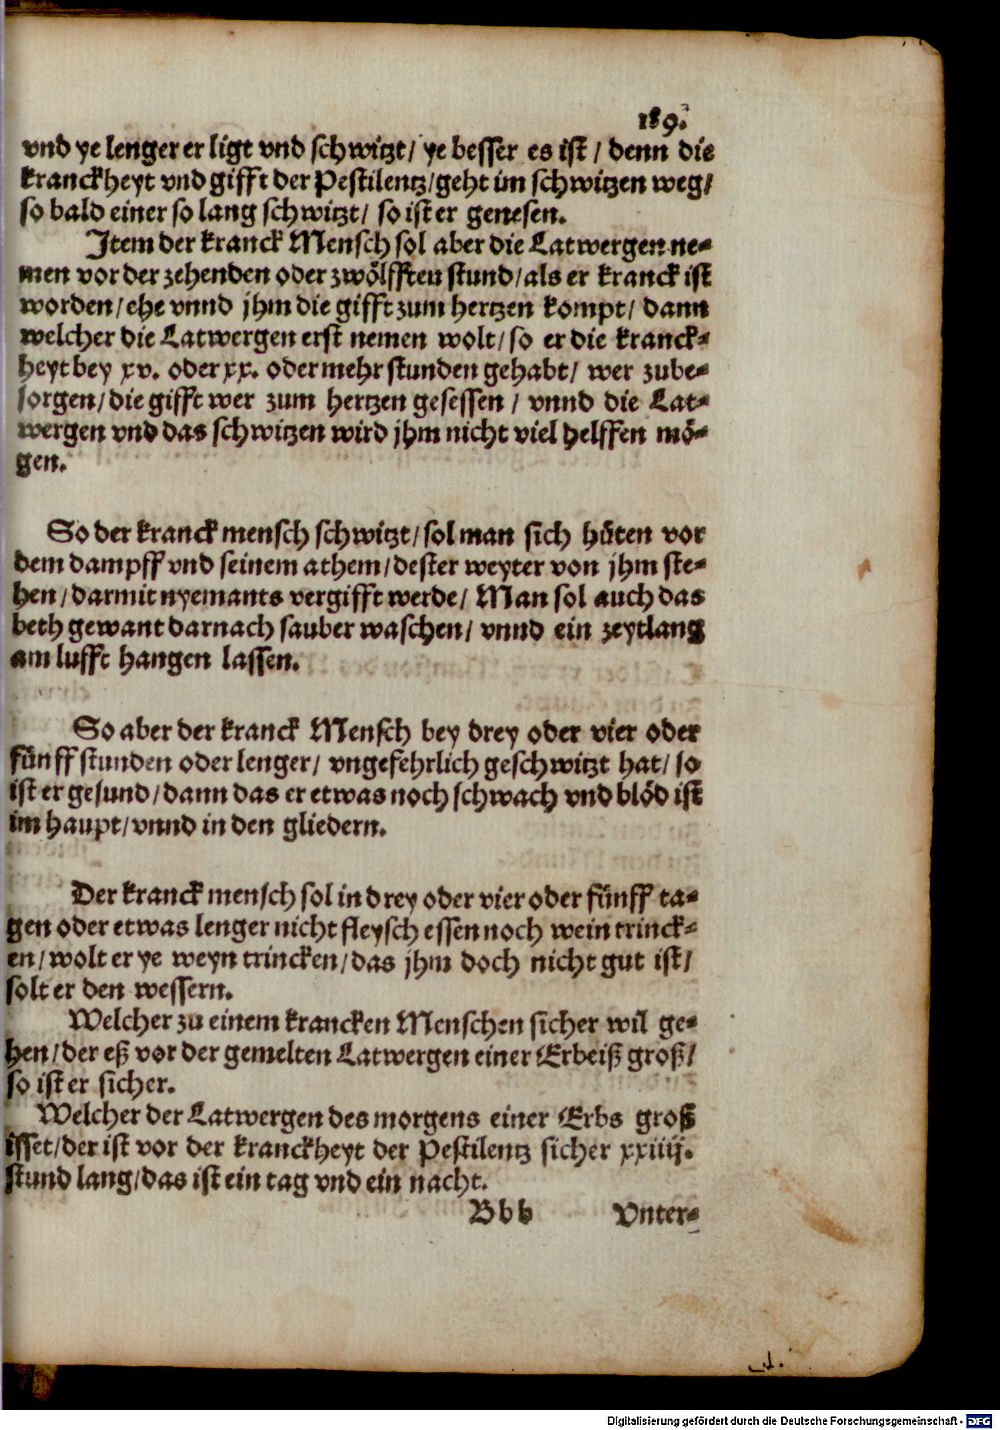 189.
vnd ye lenger er ligt vnd schwitzt / ye besser es ist / denn die
kranckheyt vnd gifft der Pestilentz / geht im schwitzen weg /
so bald einer so lang schwitzt / so ist er genesen.
Item der kranck Mensch sol aber die Latwergen ne-
men vor der zehenden oder zwölfften stund / als er kranck ist
worden / ehe vnnd jhm die gifft zum hertzen kompt / dann
welcher die Latwergen erst nemen wolt / so er die kranck-
heyt bey xv. oder xx. oder mehr stunden gehabt / wer zube-
sorgen / die gifft wer zum hertzen gesessen / vnnd die Lat-
wergen vnd das schwitzen wird jhm nicht viel helffen mö-
gen.
So der kranck mensch schwitzt / sol man sich hüten vor
dem dampff vnd seinem athem / dester weyter von jhm ste-
hen / darmit nyemants vergifft werde / Man sol auch das
beth gewant darnach sauber waschen / vnnd ein zeytlang
am lufft hangen lassen.
So aber der kranck Mensch bey drey oder vier oder
fünff stunden oder lenger / vngefehrlich geschwitzt hat / so
ist er gesund / dann das er etwas noch schwach vnd blöd ist
im haupt / vnnd in den gliedern.
Der kranck mensch sol in drey oder vier oder fünff ta-
gen oder etwas lenger nicht fleysch essen noch wein trinck-
en / wolt er ye weyn trincken / das jhm doch nicht gut ist /
solt er den wessern.
Welcher zu einem krancken Menschen sicher wil ge-
hen / der eß vor der gemelten Latwergen einer Erbeiß groß /
so ist er sicher.
Welcher der Latwergen des morgens einer Erbs groß
isset / der ist vor der kranckheyt der Pestilentz sicher xxiiij.
stund lang / das ist ein tag vnd ein nacht.
Bbb Vnter-
Digitalisierung gefördert durch die Deutsche Forschungsgemeinschaft - DFG